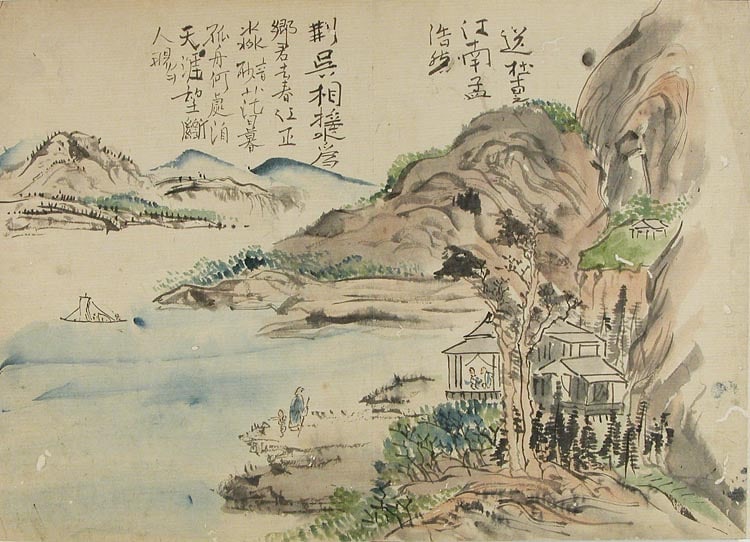 送杜
江南孟
浩然
荊吳相接水為
鄉君去春江正
淼茫日暮
孤舟何處泊
天涯望斷
人腸